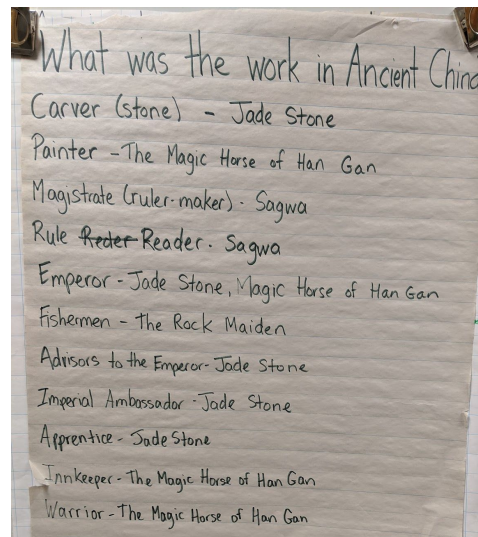 What was the work in Ancient China
Carver (stone) - Jade Stone
Painter - The Magic Horse of Han Gan
Magistrate (ruler-maker) - Sagwa
Rule Reder Reader - Sagwa
Emperor - Jade Stone, Magic Horse of Han Gan
Fishermen - The Rock Maiden
Advisors to the Emperor - Jade Stone
Imperial Ambassador - Jade Stone
Apprentice - Jade Stone
Innkeeper - The Magic Horse of Han Gan
Warrior - The Magic Horse of Han Gan